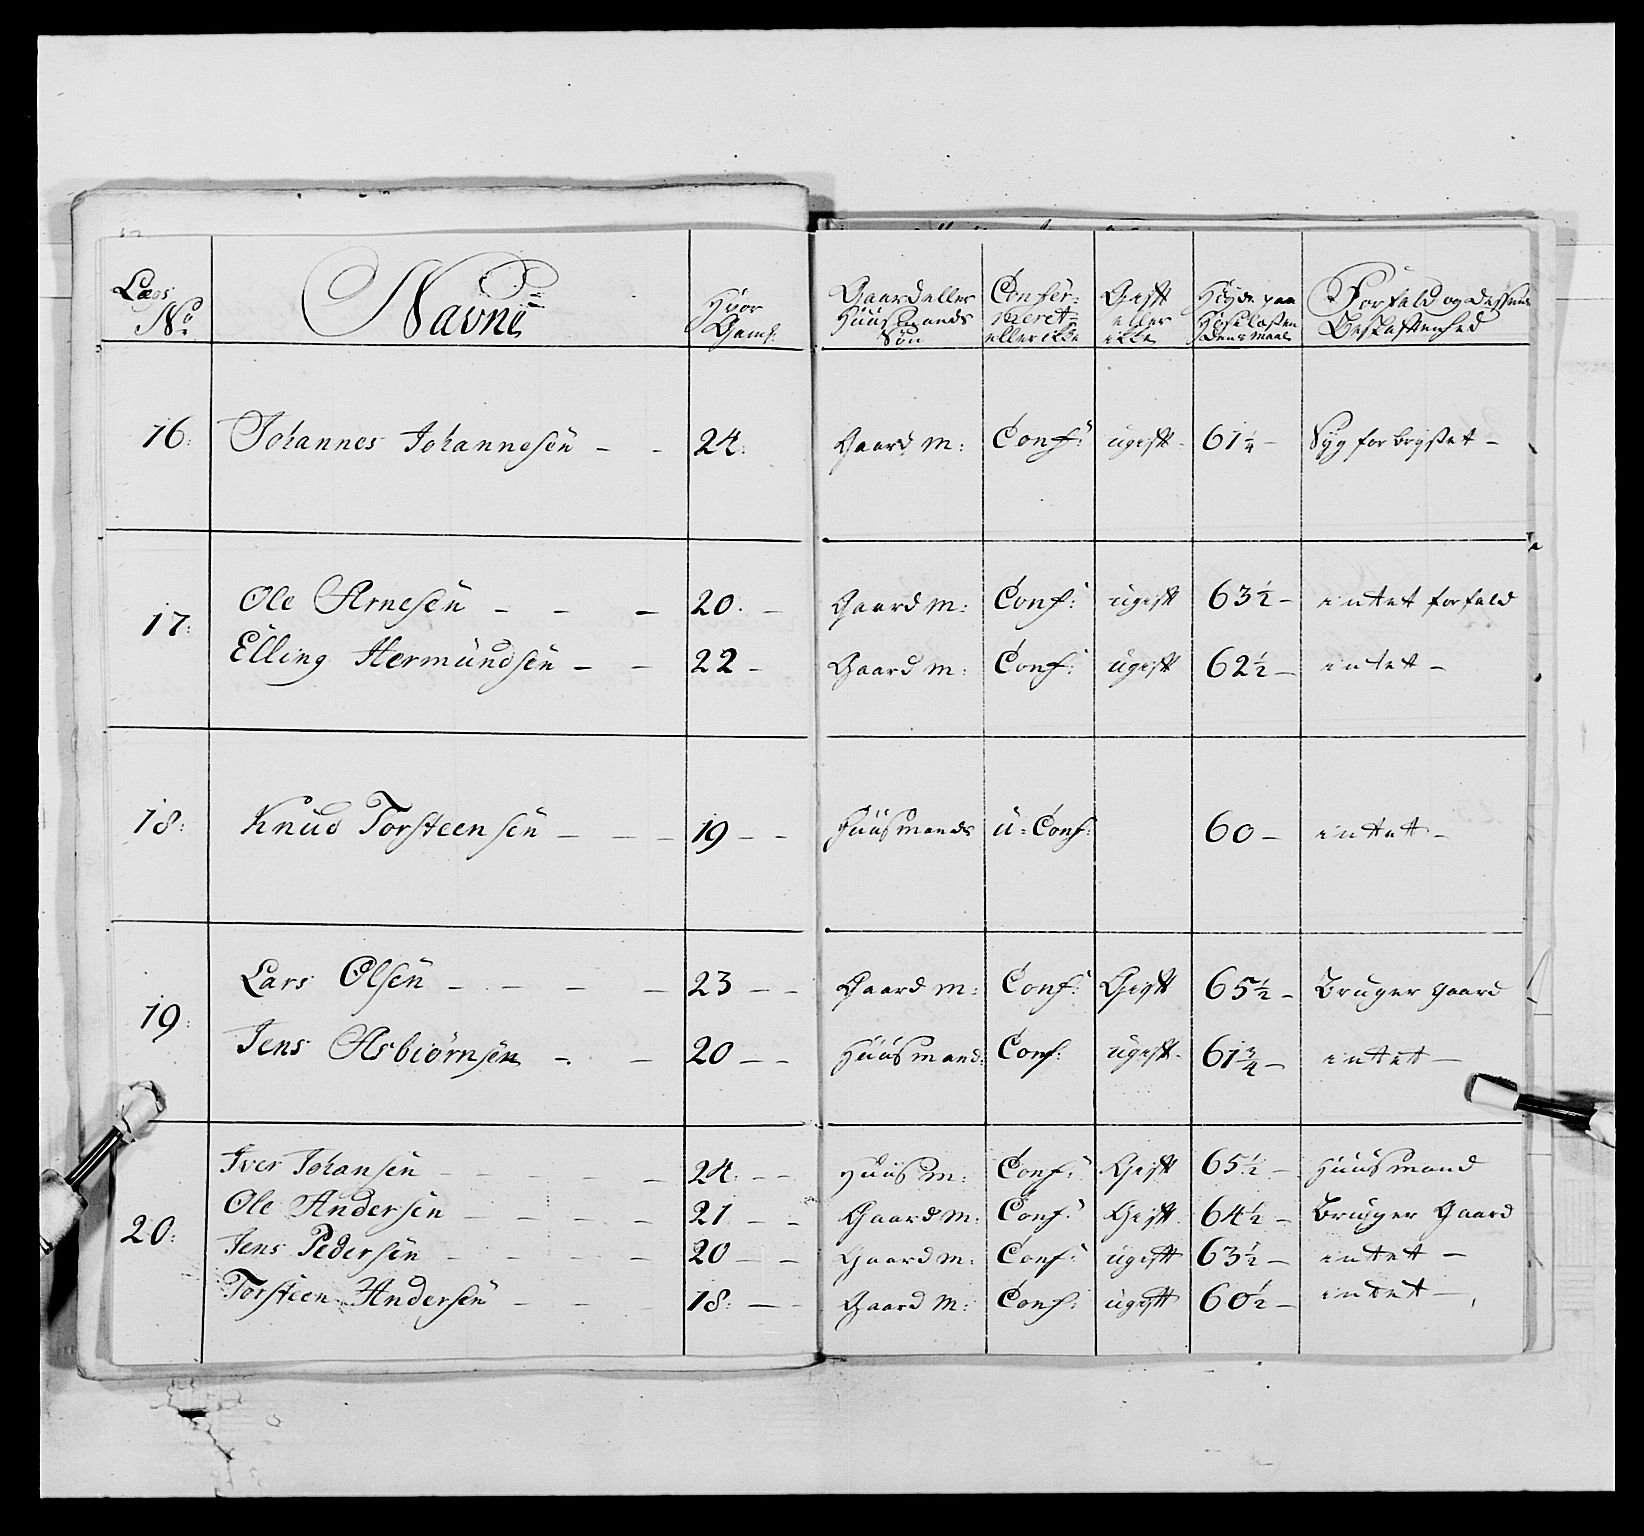 Lægs No | Navne | Hvor Gaml: | Gaard eller Huusmands Søn | Confermeret eller ikke | Gift eller ikke | Høyde paa Hosesokken | Forfald og dessens Beskaffenhed
16: | Johannes Johannesen - - | 24: | Gaard M: | Conf: | ugift - | 61 1/4 - | Syg for brystet -
17: | Ole Arnesen - - - | 20. - | Gaard M: | Conf: | ugift | 63 1/2 - | intet forfald
Elling Hermundsen - - | 22 - | Gaard M: | Conf: | ugift | 62 1/2 - | intet -
18: | Knud Torsteensen - - - | 19 - - | Huusmands | u-Conf: | 60 - | intet -
19: | Lars Olsen - - - - | 23 - - | Gaard M: | Conf: | Gift | 65 1/2 - | Bruger gaard
Jens Asbiørnsen - - | 20 - - | Huusmand: | Conf: | ugift - | 61 3/4 - | intet -
20: | Iver Johansen - - - - | 24: - - | Huus M: | Conf: | Gift | 65 1/2 - | Huusmand
Ole Andersen - - - - | 21 - - | Gaard M: | Conf: | Gift | 64 1/2 - | Bruger Gaard
Jens Pedersen - - - - | 20 - - | Gaard M: | Conf: | ugift | 63 1/2 - | intet -
Torsteen Andersen - - | 18: - - | Gaard M: | Conf: | ugift | 60 1/2 - | intet -